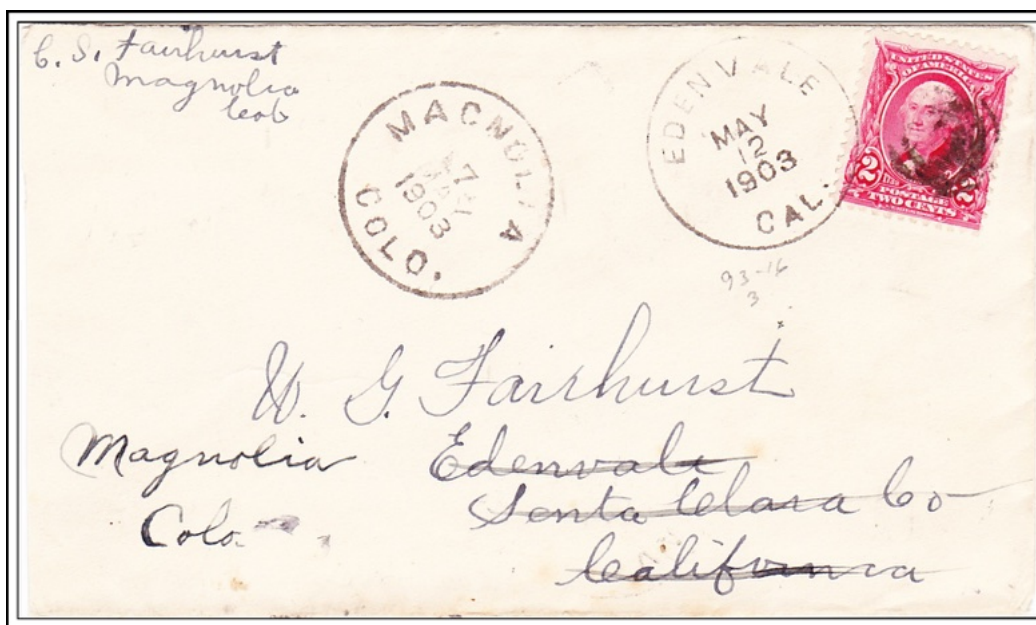 C. S. Fairhurst
Magnolia
Colo
MAGNOLIA
7
MAY
1903
COLO.
EDENVALE
MAY
12
1903
CAL.
UNITED STATES
OF AMERICA
2 2
POSTAGE
TWO CENTS
93-16
3
W. G. Fairhurst
Magnolia Edenvale
Santa Clara Co
Colo
California